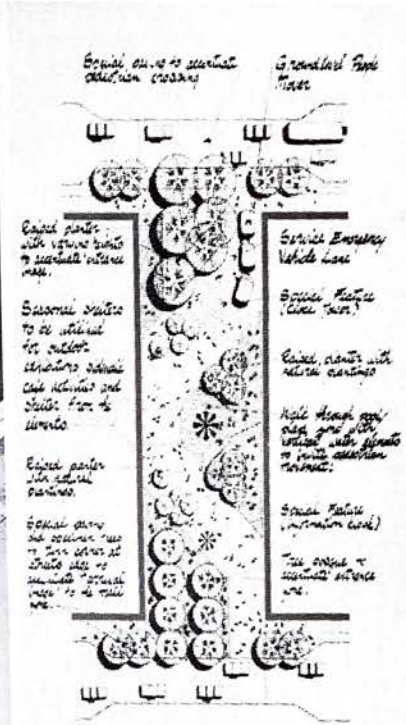 Special paving to accentuate
pedestrian crossing
Ground level People
Mover
Raised planter
with varying heights
to accentuate entrance
image.
Seasonal shelters
to be utilized
for outdoor
expositions sidewalk
cafe activities and
shelter from the
elements.
Raised planter
with natural
plantings.
Special paving
and specimen trees
to turn corner at
streets edge to
accentuate "formal
image" to the mall
Service Emergency
Vehicle Lane
Special Feature
(Clock Tower)
Raised planter with
natural plantings
Walk through pool/
with
vertical water elements
to invite pedestrian
movement.
Special Feature
(Information kiosk)
Tree to
accentuate entrance